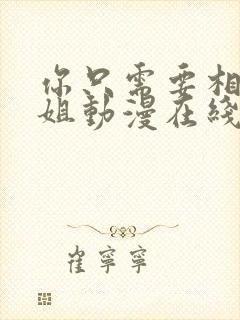 你只需要相
姐動漫在綫
崔寧寧